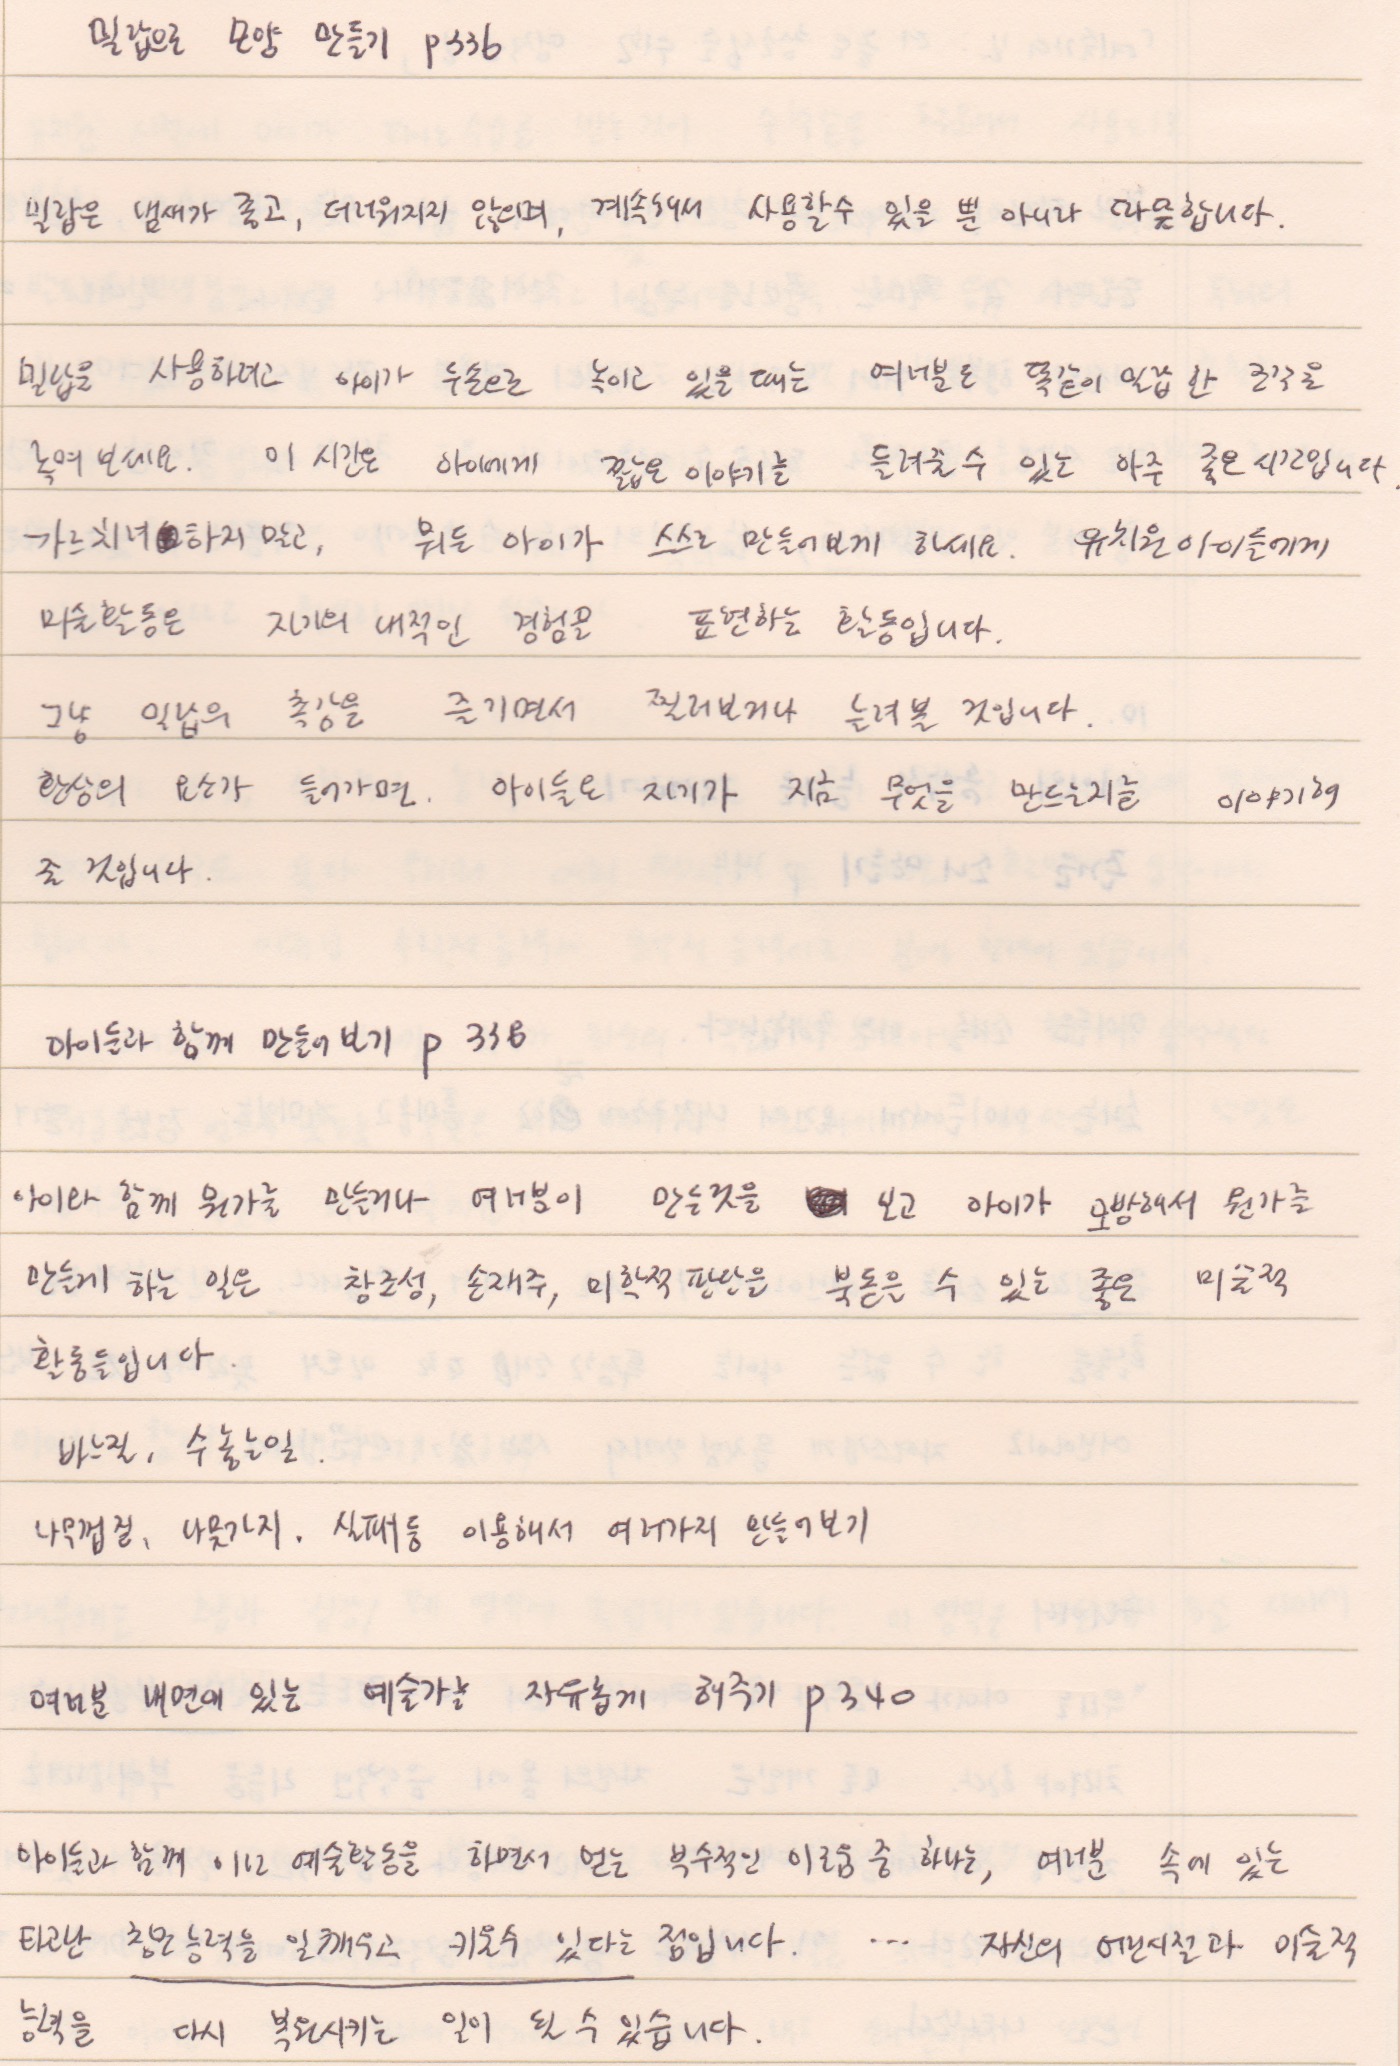 밀랍으로 모양 만들기 p336
밀랍은 냄새가 좋고, 더러워지지 않으며, 계속해서 사용할수 있을 뿐 아니라 따뜻합니다.
밀랍을 사용하려고 아이가 두손으로 녹이고 있을 때는 여러분도 똑같이 밀랍 한 조각을
녹여 보세요. 이 시간은 아이에게 짧은 이야기를 들려줄 수 있는 아주 좋은 시간입니다.
가르치려 하지 말고, 뭐든 아이가 스스로 만들어보게 하세요. 유치원 아이들에게
미술활동은 자기의 내적인 경험을 표현하는 활동입니다.
그냥 밀랍의 촉감을 즐기면서 찔러보거나 눌려볼 것입니다.
환상의 요소가 들어가면. 아이들은 자기가 지금 무엇을 만드는지를 이야기해
줄 것입니다.
아이들과 함께 만들어보기 p 338
아이와 함께 뭔가를 만들거나 여러분이 만든것을 보고 아이가 모방해서 뭔가를
만들게 하는 일은 창조성, 손재주, 미학적 판단을 북돋은 수 있는 좋은 미술적
활동들입니다.
바느질, 수놓는일.
나무껍질, 나뭇가지. 실패등 이용해서 여러가지 만들어보기
여러분 내면에 있는 예술가를 자유롭게 해주기 p340
아이들과 함께 이런 예술활동을 하면서 얻는 부수적인 이로움 중 하나는, 여러분 속에 있는
타고난 창조능력을 일깨우고 키울수 있다는 점입니다. ... 자신의 어린시절과 미술적
능력을 다시 복원시키는 일이 될 수 있습니다.